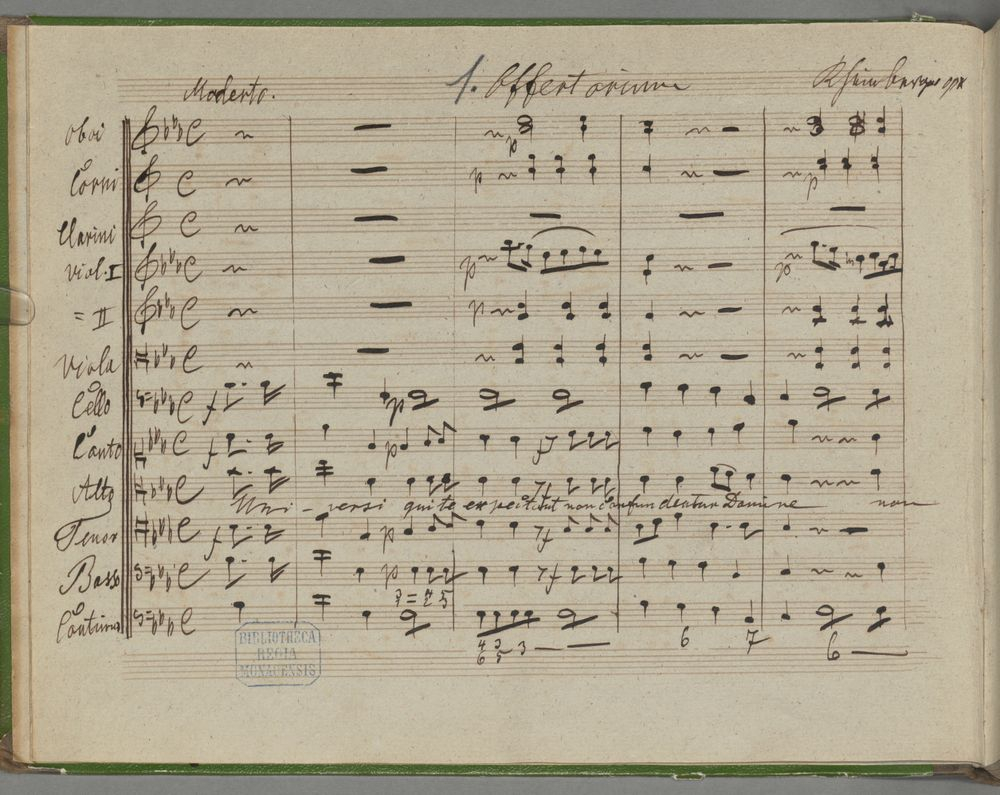 Moderto. 1. Offertorium
Oboi
Corni
Clarini
Viol. I
= II
Viola
Cello
Canto
Alto
Uni - versi qui te expectant non confundentur Domine non
Tenor
Basso
7 = 4 5
Continuo
4 3 3 6 7 6
6 5
BIBLIOTHECA
REGIA
MONACENSIS